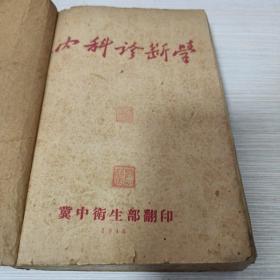 内科诊断學
冀中衛生部翻印